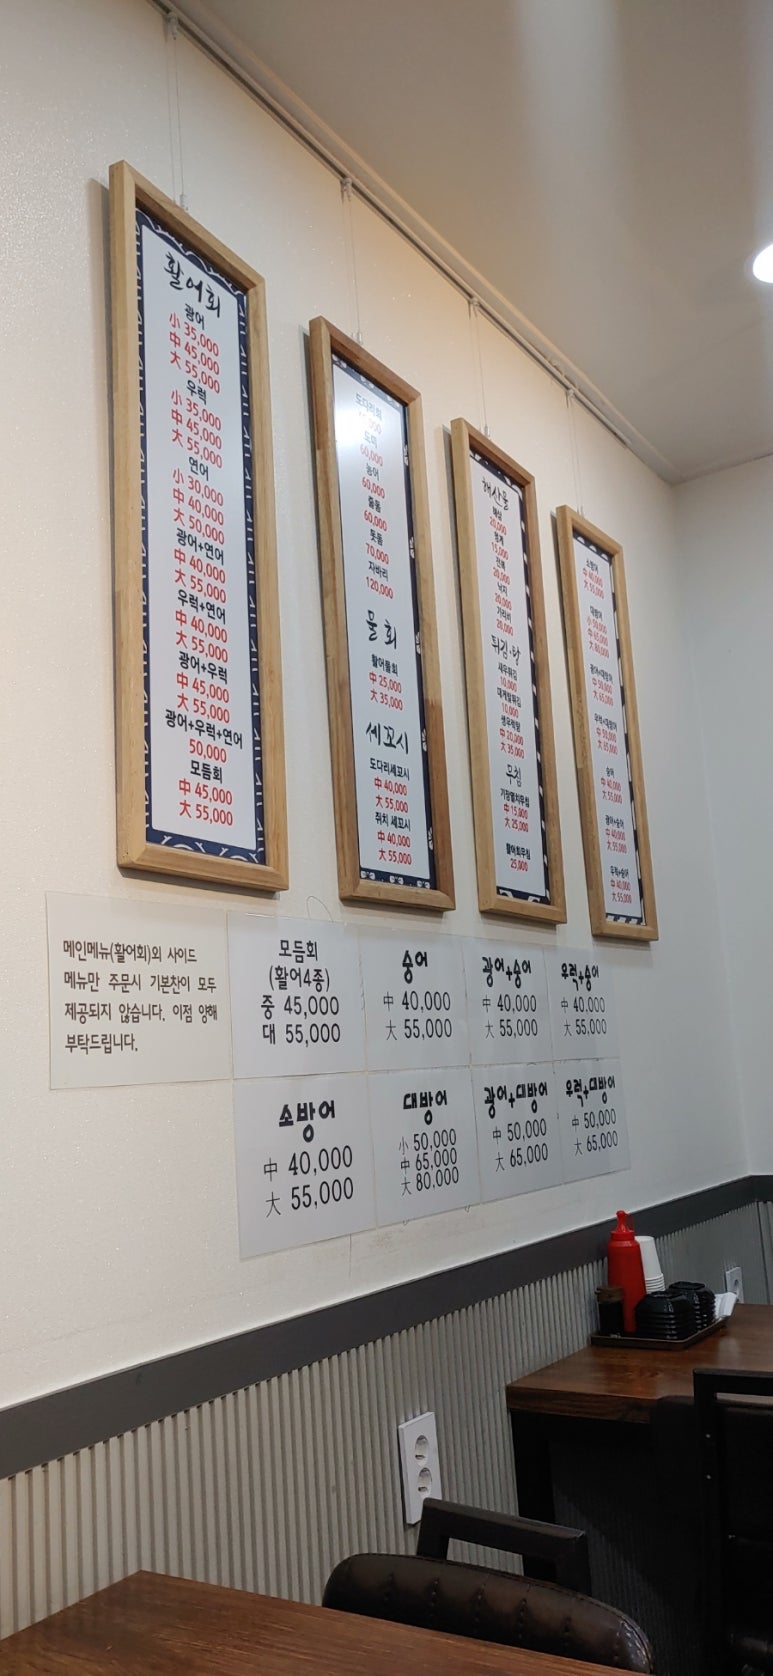 활어회
광어
小 35,000
中 45,000
大 55,000
우럭
小 35,000
中 45,000
大 55,000
연어
小 30,000
中 40,000
大 50,000
광어+연어
中 40,000
大 55,000
우럭+연어
中 40,000
大 55,000
광어+우럭
中 45,000
大 55,000
광어+우럭+연어
50,000
모듬회
中 45,000
大 55,000
도다리회
도미
60,000
농어
60,000
줄돔
60,000
돗돔
70,000
자바리
120,000
물회
활어물회
中 25,000
大 35,000
세꼬시
도다리세꼬시
中 40,000
大 55,000
쥐치 세꼬시
中 40,000
大 55,000
해산물
해삼
20,000
멍게
15,000
전복
20,000
낙지
20,000
가리비
20,000
튀김·탕
새우튀김
10,000
대게살튀김
10,000
생우럭탕
中 20,000
大 35,000
무침
기장멸치무침
中 15,000
大 25,000
활어회무침
25,000
소방어
中 40,000
大 55,000
대방어
小 50,000
中 65,000
大 80,000
광어+대방어
中 50,000
大 65,000
우럭+대방어
中 50,000
大 65,000
숭어
中 40,000
大 55,000
광어+숭어
中 40,000
大 55,000
우럭+숭어
中 40,000
大 55,000
메인메뉴(활어회)외 사이드
메뉴만 주문시 기본찬이 모두
제공되지 않습니다. 이점 양해
부탁드립니다.
모듬회
(활어4종)
중 45,000
대 55,000
숭어
中 40,000
大 55,000
광어+숭어
中 40,000
大 55,000
우럭+숭어
中 40,000
大 55,000
소방어
中 40,000
大 55,000
대방어
小 50,000
中 65,000
大 80,000
광어+대방어
中 50,000
大 65,000
우럭+대방어
中 50,000
大 65,000